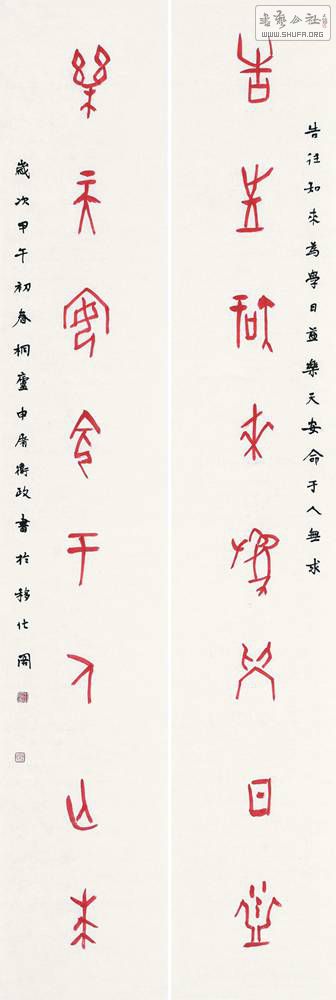 書藝公社
WWW.SHUFA.ORG
告往知來為學日益樂天安命于人無求
告往知來為學日益
樂天安命于人亡求
歲次甲午初春桐廬申屠衛政書於移仕閣